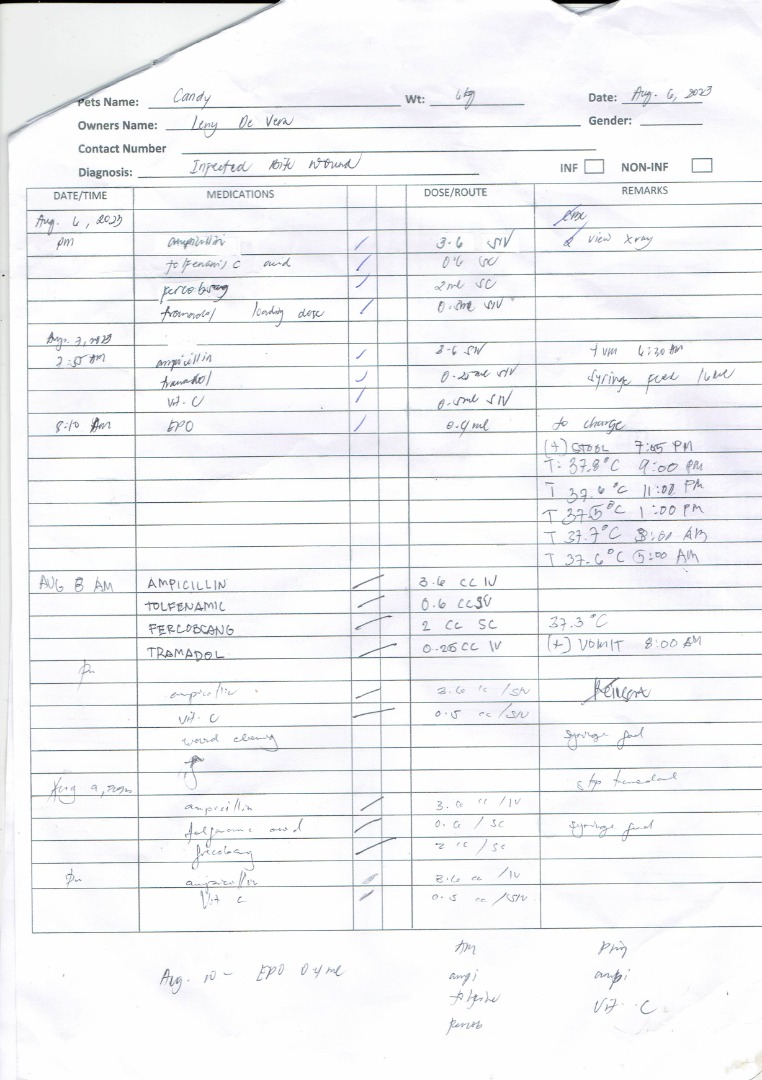 Pets Name: Candy Wt: 6kg Date: Aug. 6, 2023
Owners Name: Leny De Vera Gender:
Contact Number
Diagnosis: Infected Bite Wound INF NON-INF
DATE/TIME MEDICATIONS DOSE/ROUTE REMARKS
Aug. 6, 2023
PM ampicillin 3.6 SIV view xray
tolfenamic acid 0.6 SC
fercobsang 2ml SC
tramadol loading dose SIV
Aug. 7, 2023
2:50 AM ampicillin 3.6 SIV 6:30 AM
tramadol 0.25 ml SIV syringe feed
vit. C 0.5ml SIV
8:10 AM EPO 0.4 ml to charge
(+) STOOL 7:05 PM
T: 37.8°C 9:00 PM
T 37.6°C 11:00 PM
T 37.5°C 1:00 PM
T 37.7°C 3:00 AM
T 37.6°C 5:00 AM
AUG 8 AM AMPICILLIN 3.6 CC IV
TOLFENAMIC 0.6 CC
FERCOBSCANG 2 CC SC 37.3°C
TRAMADOL 0.25CC IV (+) VOMIT 8:00 AM
pm
ampicillin 3.6 cc /SIV
vit. C 0.5 cc /SIV
wound cleaning syringe feed
Aug 9, stop tramadol
ampicillin 3.6 cc /IV
tolfenamic acid 0.6 / SC syringe feed
fercobsang 2 cc / SC
pm ampicillin 3.6 cc /IV
Vit C 0.5 cc /SIV
AM PM
Aug. 10 - EPO 0.4 ml ampi ampi
Vit. C